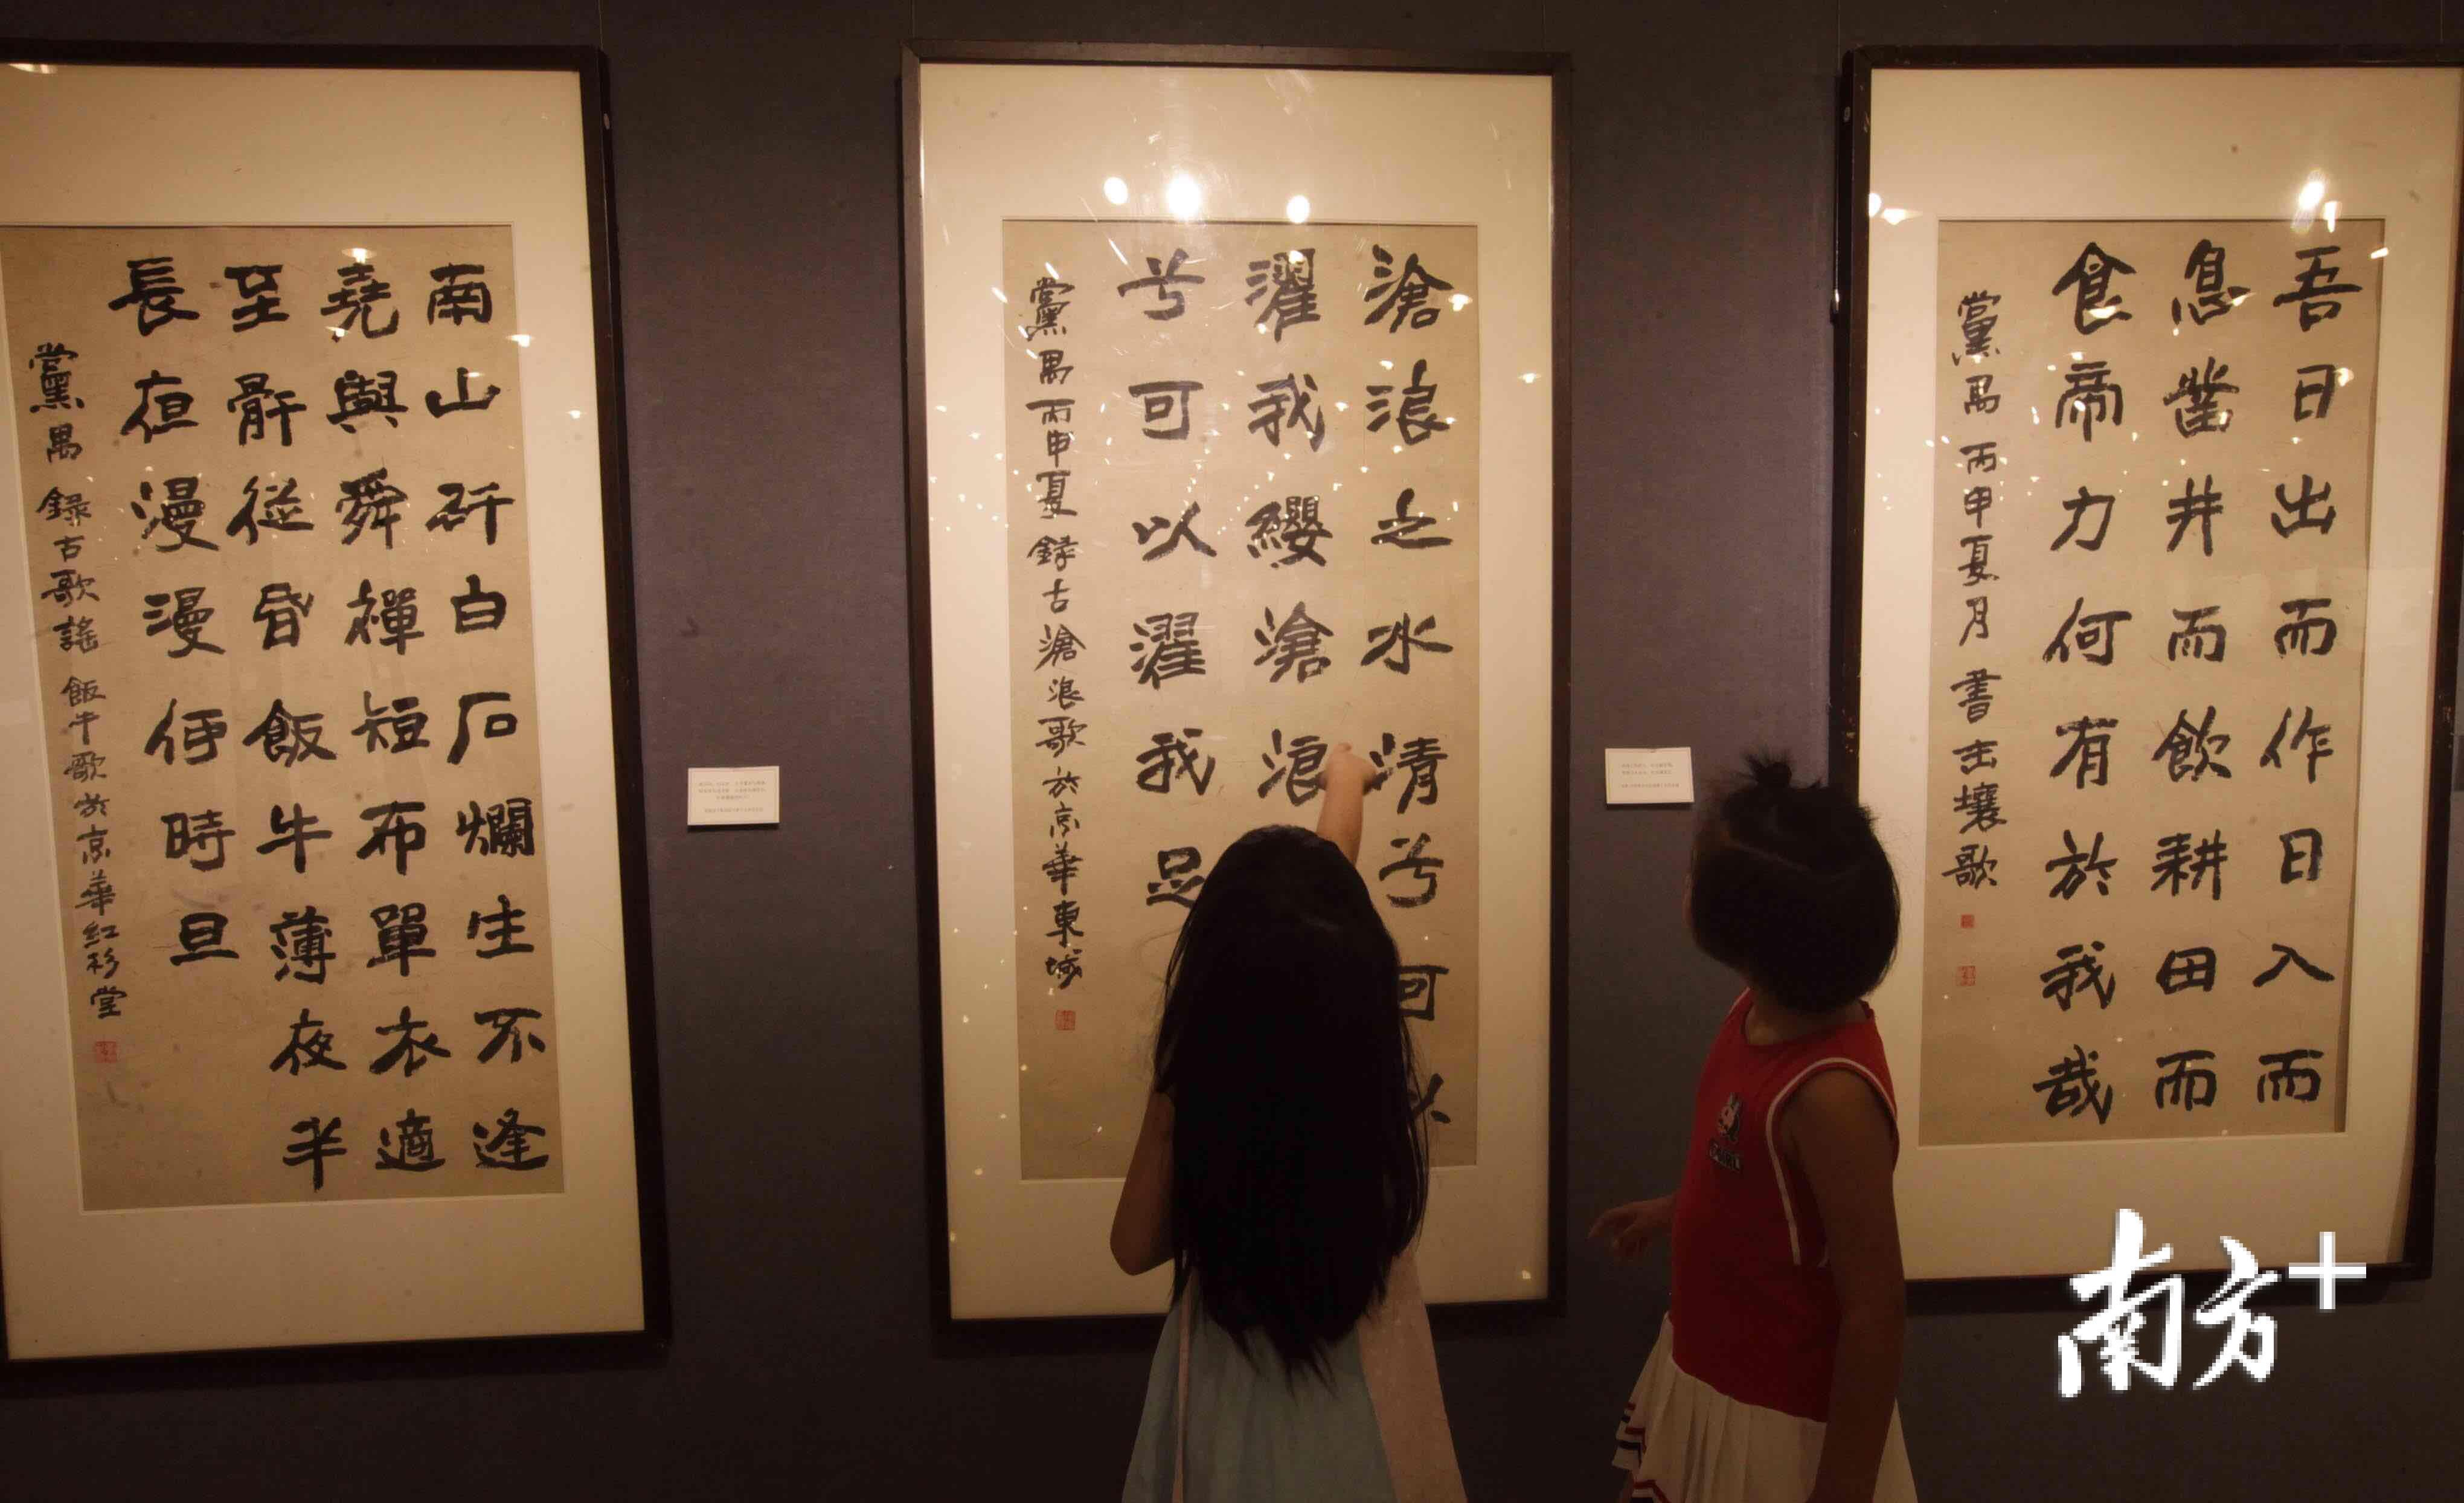 南山矸白石爛生不逢
堯與舜禪短布單衣適
至骭從昏飯牛薄夜半
長夜漫漫何時旦
黨禺 錄古歌謠 飯牛歌於京華紅杉堂
滄浪之水清兮可以
濯我纓滄浪
兮可以濯我足
黨禺丙申夏錄古滄浪歌於京華東城
吾日出而作日入而
息鑿井而飲耕田而
食帝力何有於我哉
黨禺丙申夏月書击壤歌
南方+